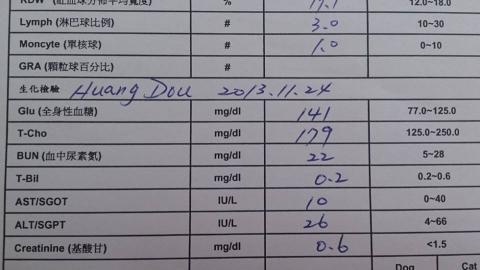 RDW (紅血球分佈平均寬度) % 17.1 12.0~18.0
Lymph (淋巴球比例) # 3.0 10~30
Moncyte (單核球) # 1.0 0~10
GRA (顆粒球百分比) #
生化檢驗 Huang Dou 2013.11.24
Glu (全身性血糖) mg/dl 141 77.0~125.0
T-Cho mg/dl 179 125.0~250.0
BUN (血中尿素氮) mg/dl 22 5~28
T-Bil mg/dl 0.2 0.2~0.6
AST/SGOT IU/L 10 0~40
ALT/SGPT IU/L 26 4~66
Creatinine (基酸甘) mg/dl 0.6 <1.5
Dog Cat